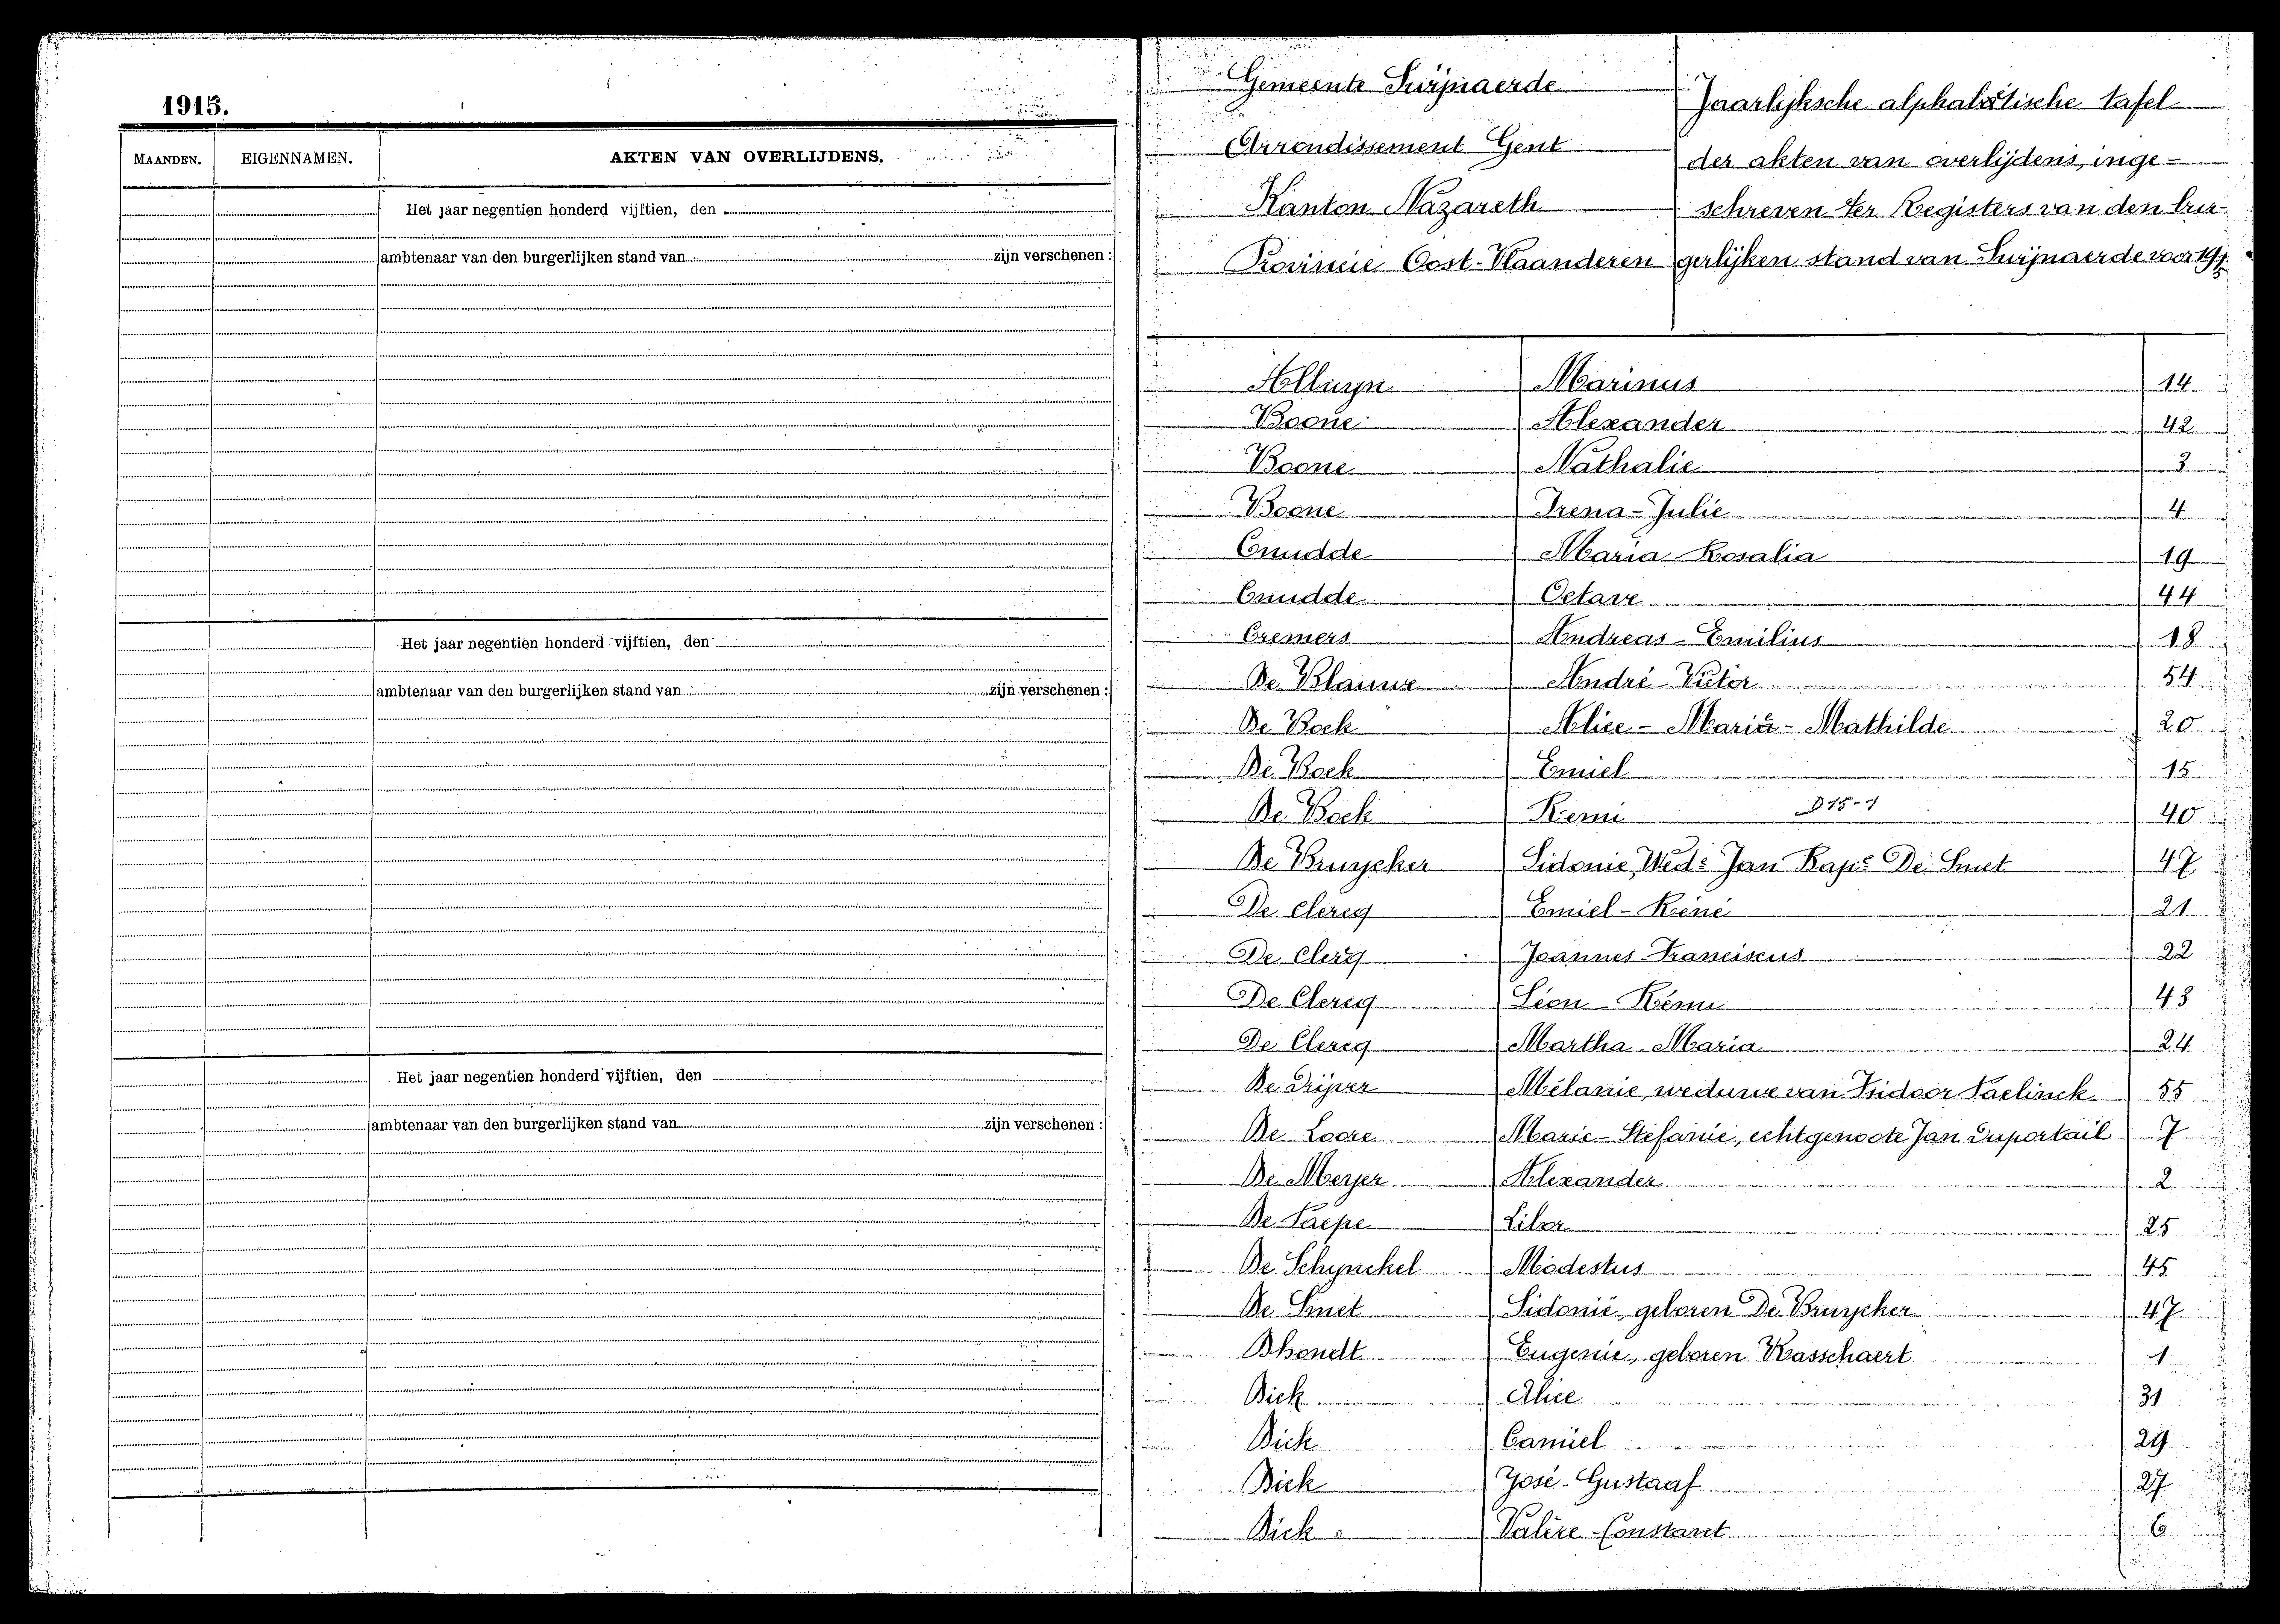 1915.
MAANDEN. EIGENNAMEN. AKTEN VAN OVERLIJDENS.
Het jaar negentien honderd vijftien, den
ambtenaar van den burgerlijken stand van zijn verschenen :
Het jaar negentien honderd vijftien, den
ambtenaar van den burgerlijken stand van zijn verschenen :
Het jaar negentien honderd vijftien, den
ambtenaar van den burgerlijken stand van zijn verschenen :
Gemeente Swijnaerde
Arrondissement Gent
Kanton Nazareth
Provincie Oost-Vlaanderen
Jaarlijksche alphabétische tafel
der akten van overlijdens, inge-
schreven ter Registers van den bur-
gerlijken stand van Swijnaerde voor
Marinus 14
Boone Alexander 42
Boone Nathalie 3
Boone Irena-Julie 4
Cnudde Maria Rosalia 19
Cnudde Octave 44
Cremers Andreas-Emilius 18
De Blauwe André Victor 54
De Bock Alice-Maria-Mathilde 20
De Bock Emiel 15
De Bock Remi D 15-1 40
De Bruycker Sidonie, Wede Jan Bapt De Smet 47
De Clercq Emiel-René 21
De Clercq Joannes-Franciscus 22
De Clercq Léon-Rémi 43
De Clercq Martha Maria 24
De Drijver Mélanie, weduwe van Isidoor Paelinck 55
De Loore Marie-Stefanie, echtgenoote Jan Duportail 7
De Meyer Alexander 2
De Paepe 25
De Schynckel Modestus 45
De Smet Sidonie, geboren De Bruycker 47
Dhondt Eugenie, geboren Wasschaert 1
Dick Alice 31
Dick Camiel 29
Dick José-Gustaaf 27
Dick Valère-Constant 6